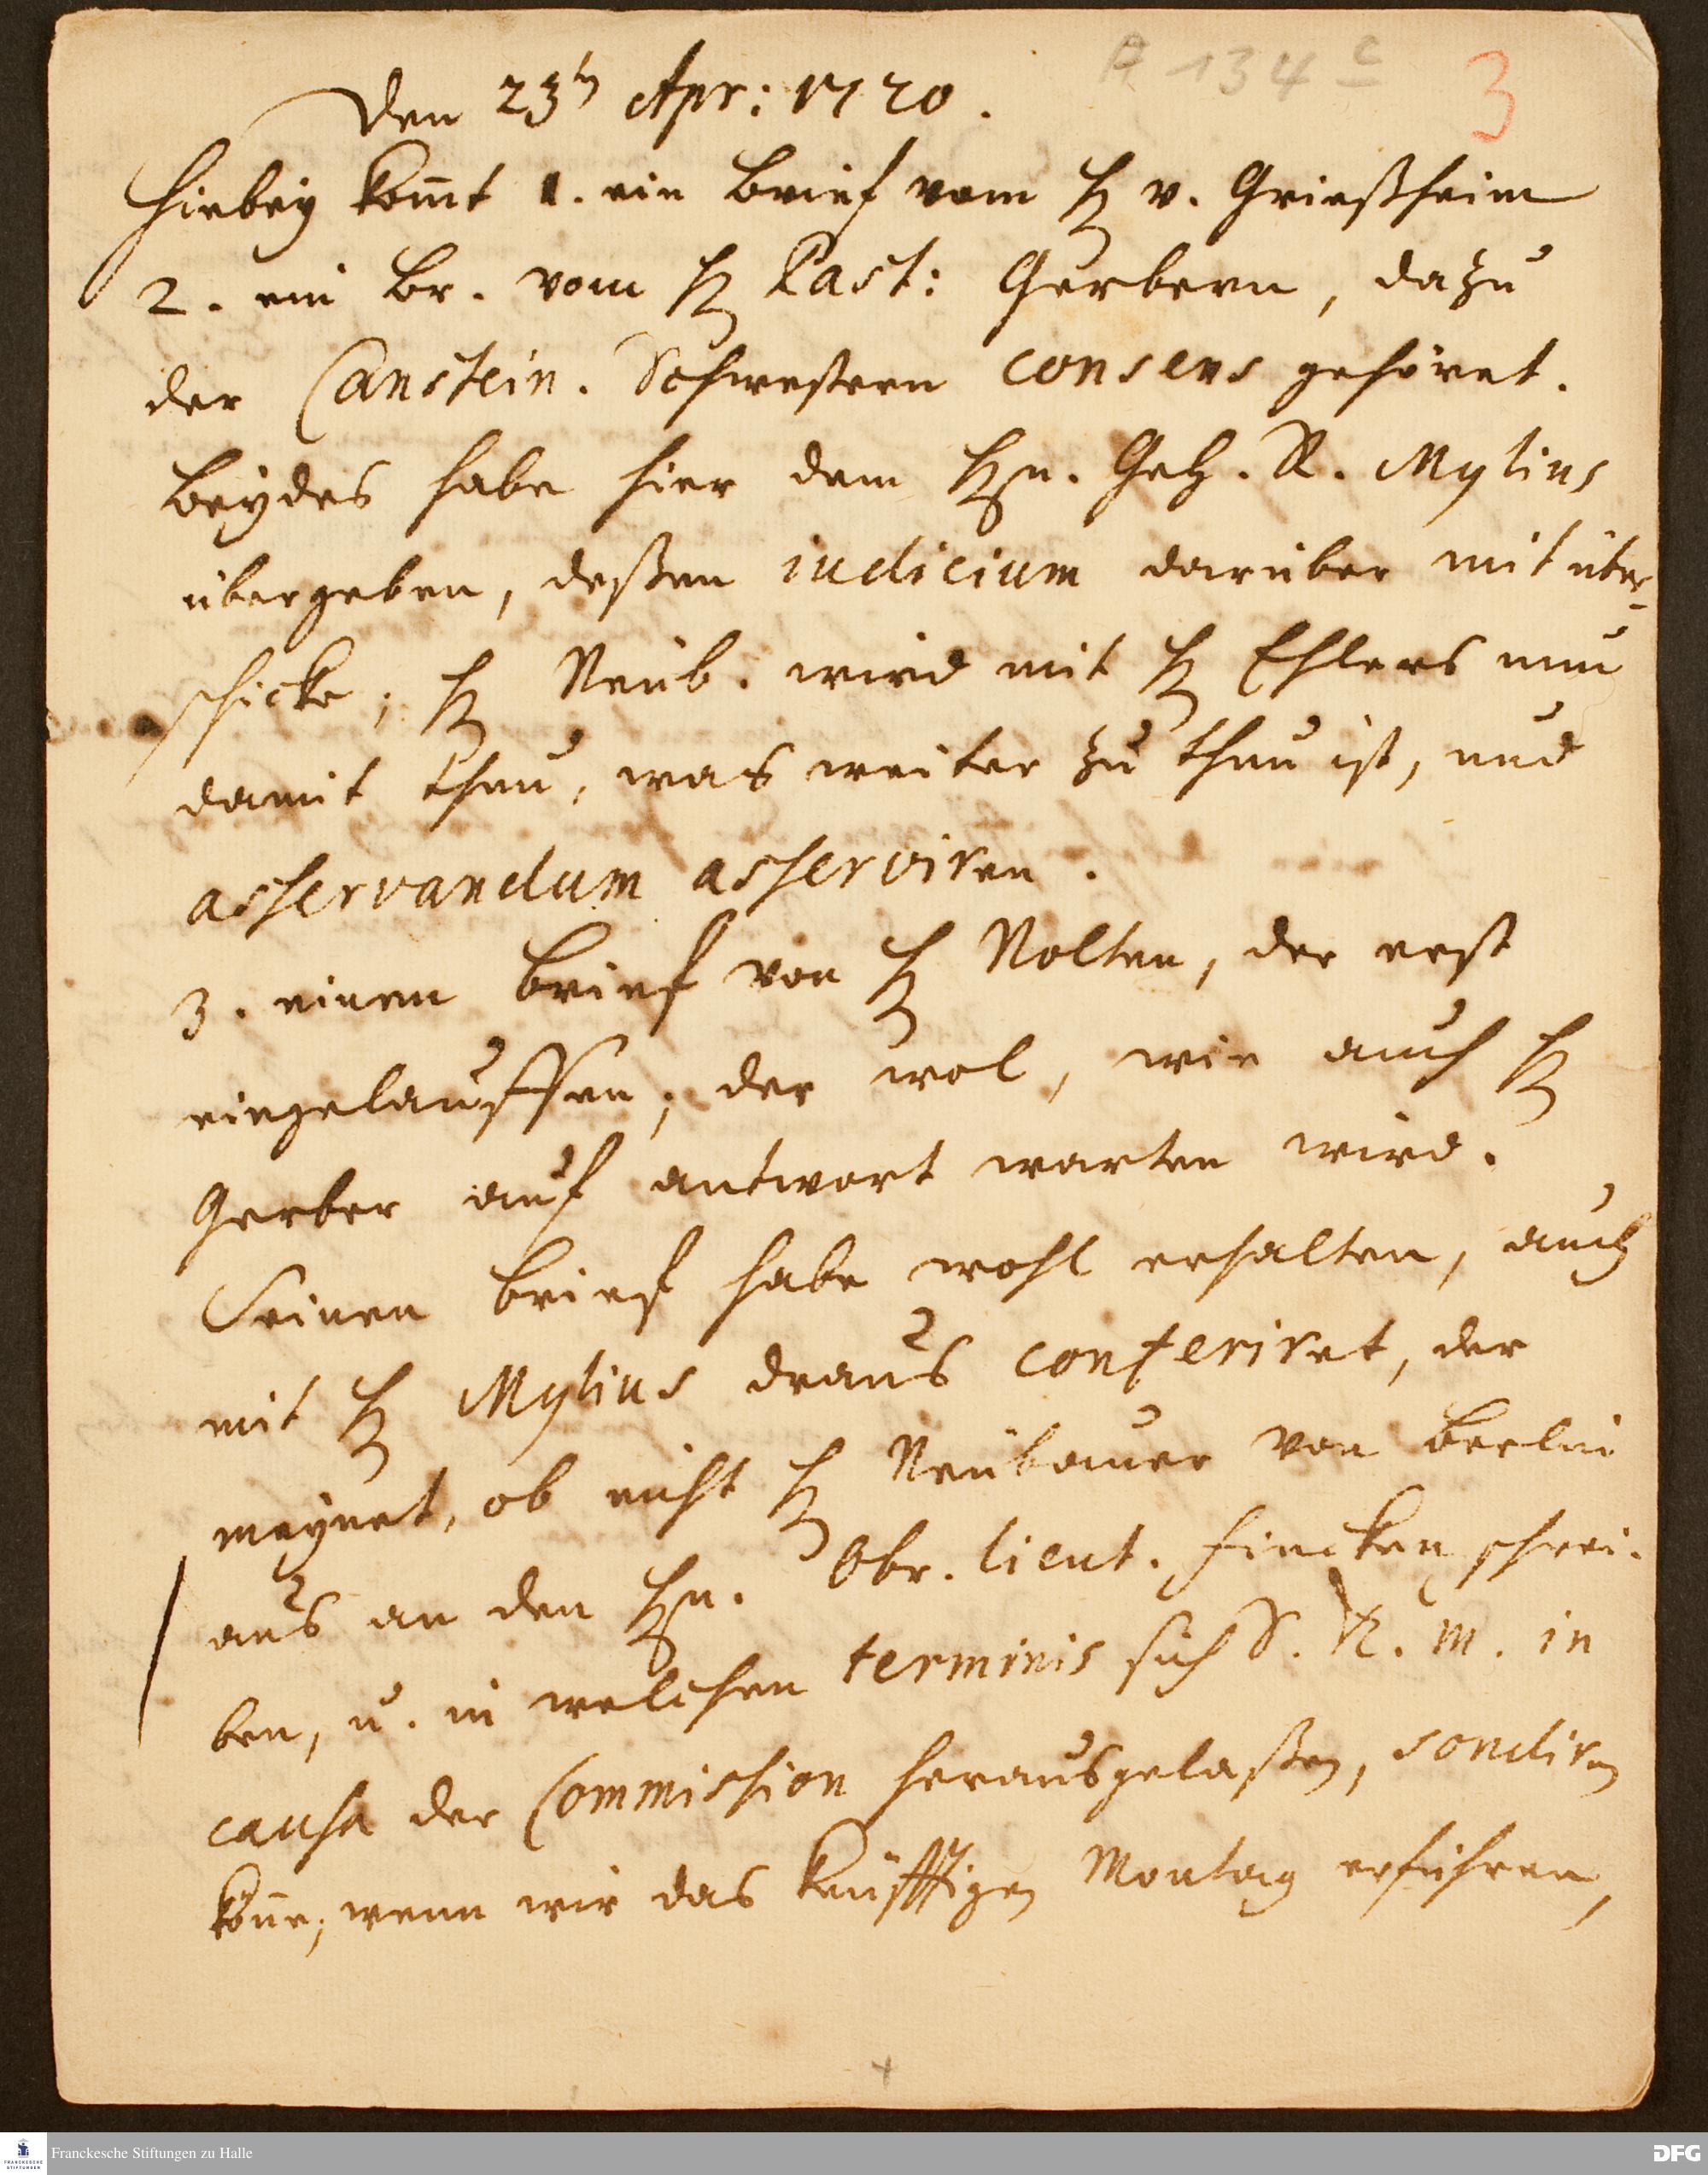 A 134 c
3
Den 23t Apr: 1720.
Hiebey kom̄t 1. ein Brief vom H v. Grießheim
2. ein Br. vom H Past: Gerbern, dazu
der Canstein. Schwestern consens gehöret.
Beydes habe hier dem Hn. Geh. R. Mylius
übergeben, deßen iudicium darüber mit über-
schicke; H Neub. wird mit H Ehlers nun
damit thun, was weiter zu thun ist, und
asservandum asserviren.
3. einen Brief von H Nolten, der erst
eingelauffen; der wol, wie auch H
Gerber auf antwort warten wird.
Seinen Brief habe wohl erhalten, auch
mit H Mylius draus conferiret, der
meynet, ob nicht H Neubauer von Berlin
aus an den Hn. Obr. Lieut. Fincken schrei-
ben, u. in welchen terminis sich S. K. M. in
causa der Commission herausgelaßen, sondiren
kön̄e; wenn wir das künfftigen Montag erführen,
Franckesche Stiftungen zu Halle
DFG